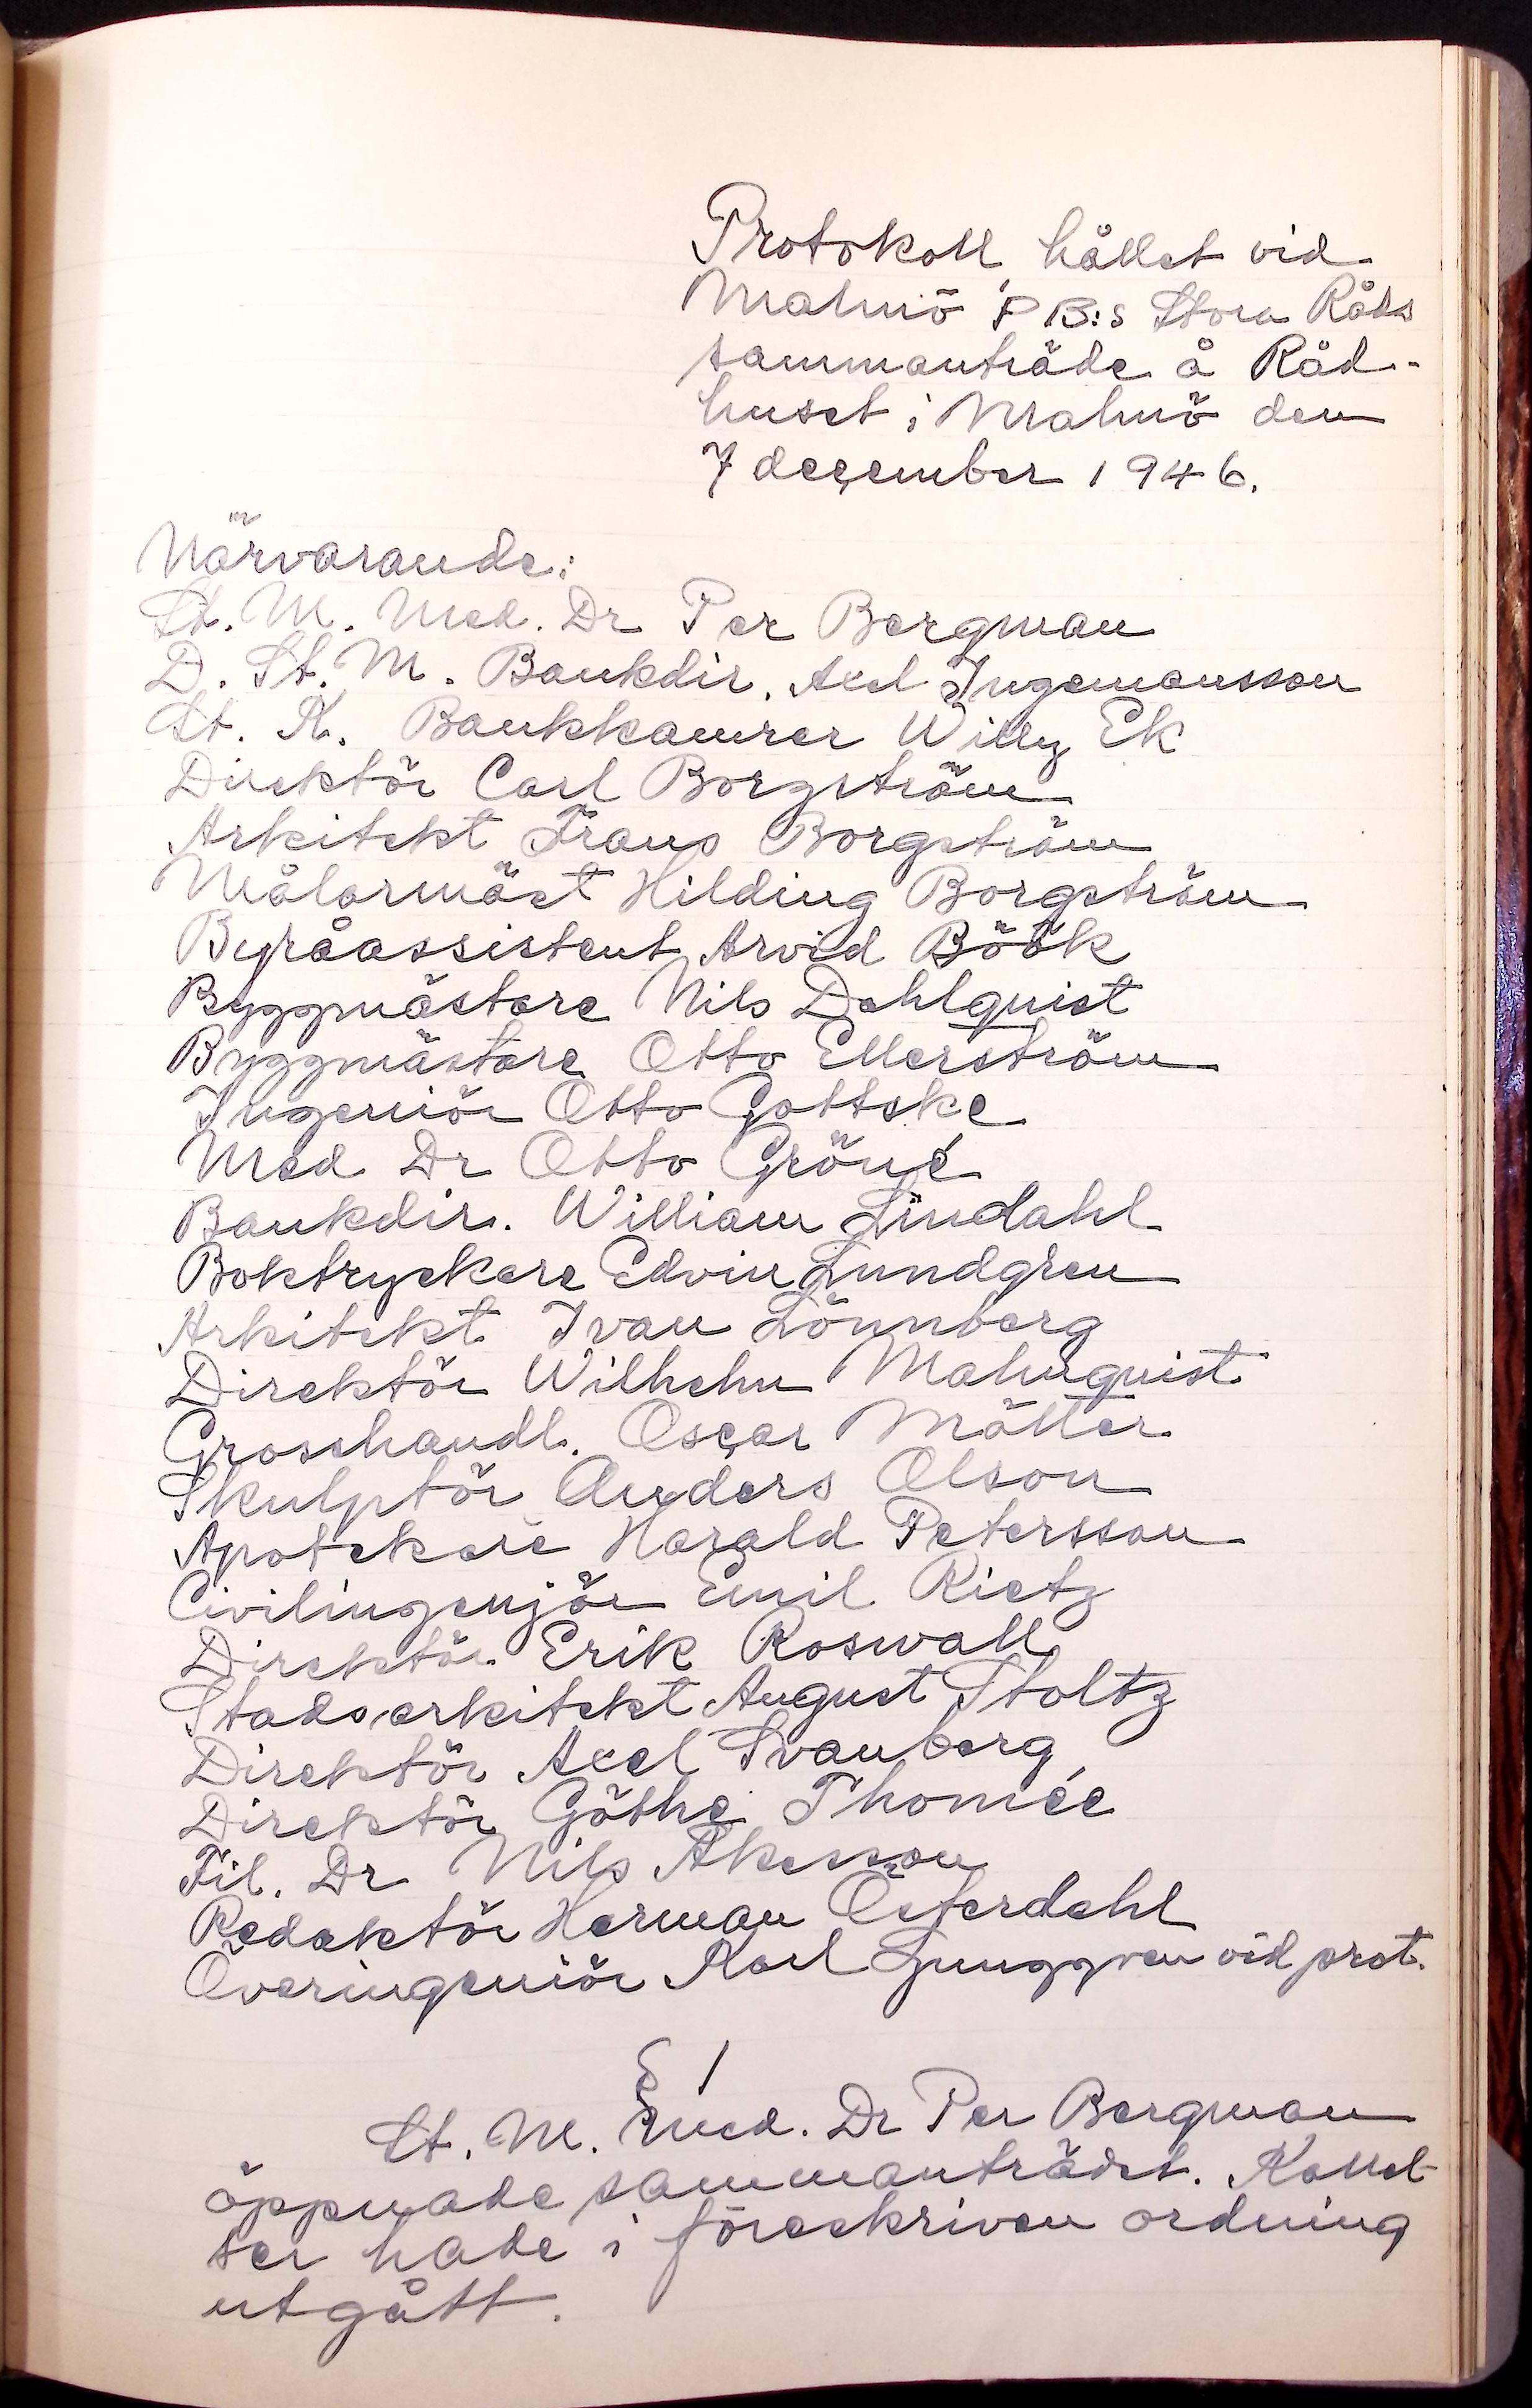 Protokoll, hållet vid
Malmö PB:s Stora Råds
sammanträde å Råd-
huset i Malmö den
7 december 1946.
Närvarande:
St. M. Med. Dr Per Bergman
D. St. M. Bankdir. Axel Ingemansson
St. K. Bankkamrer Willy Ek
Direktör Carl Borgström
Arkitekt Frans Borgström
Målarmäst Hilding Borgström
Byråassistent Arvid Böök
Byggmästare Nils Dahlquist
Byggmästare Otto Ellerström
Ingeniör Otto Gottske
Med Dr Otto Gröné
Bankdir. William Lindahl
Boktryckare Edvin Lundgren
Arkitekt Ivan Lönnberg
Direktör Wilhelm Malmquist
Grosshandl. Oscar Möller
Skulptör Anders Olson
Apotekare Harald Petersson
Civilingenjör Emil Rietz
Direktör Erik Roswall
Stadsarkitekt August Stoltz
Direktör Axel Svanberg
Direktör Göthe Thomée
Fil. Dr Nils Åkesson
Redaktör Herman Österdahl
Överingeniör Karl Ljunggren vid prot.
§ 1
St. M. Med. Dr Per Bergman
öppnade sammanträdet. Kallel-
ser hade i föreskriven ordning
utgått.